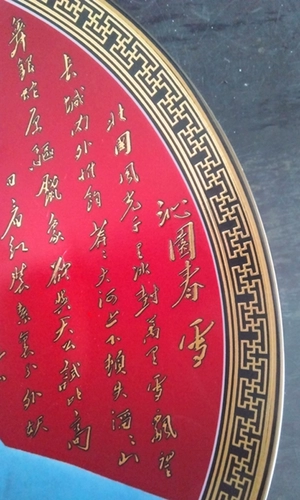 沁園春雪
北国风光千里冰封万里雪飘望
长城内外惟余莽莽大河上下顿失滔滔山
舞银蛇原驰蜡象欲与天公试比高
日看红装素裹分外妖